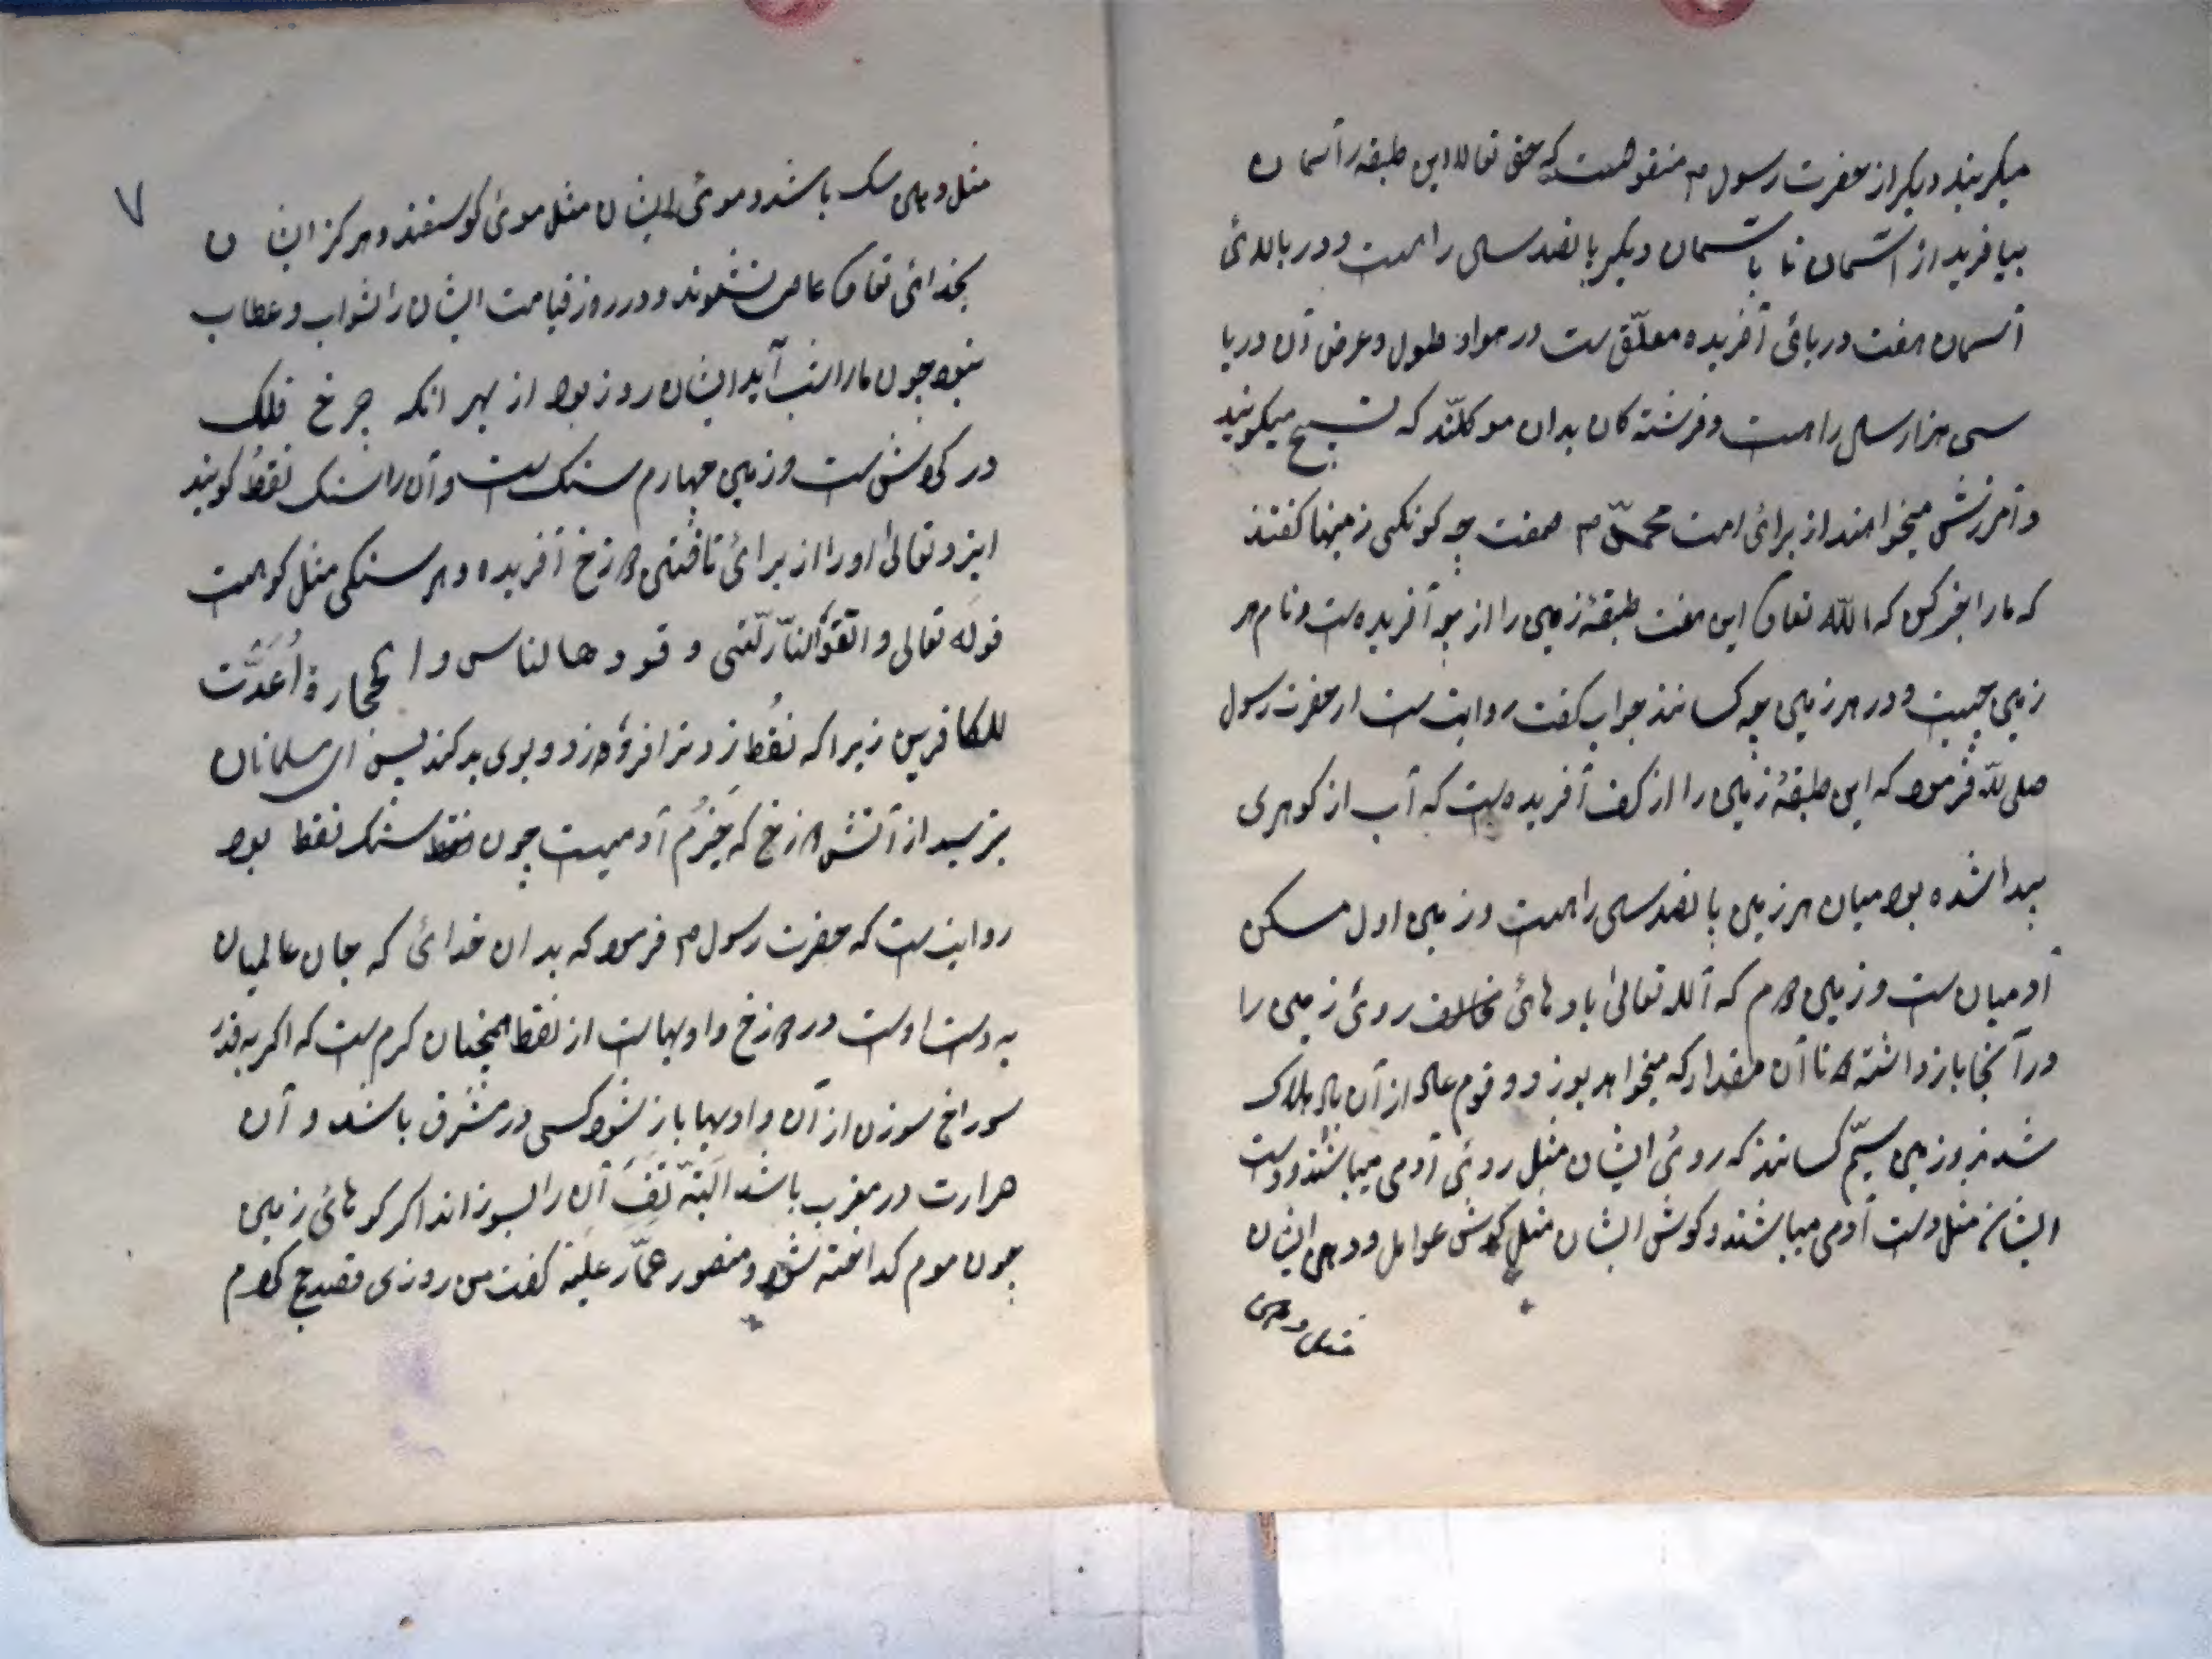 میکریند دیکر از حضرت رسول م منقولست که حق تعالا این طبقه را آسمان
بیافرید از آسمان تا بآسمان دیکر پانصد ساله راهست و در بالائی
آسمان هفت دریائی آفریده معلّق ست در هوا و طول و عرض آن دریا
سی هزار ساله راهست و فرشته کان بدان موکلند که تسبیح میکویند
و آمرزش میخواهند از برائی امت محمّد م صفت چه کونکی زمینها کفتند
که ما را خبر کن که الله تعالی این هفت طبقۀ زمین را از چه آفریده ست و نام هر
زمین چیست و در هر زمین چه کسانند جواب کفت روایت ست از حضرت رسول
صلی الله فرمود که این طبقۀ زمین را از کف آفریده ست که آب از کوهری
پیدا شده بود میان هر زمین پانصد ساله راهست و زمین اول مسکن
آدمیان ست و زمین دوم که آلله تعالی بادهائی مخالف روئی زمین را
در آنجا باز داشته تا آن مقدار که میخواهد بوزد و قوم عاد از آن باد هلاک
شدند و زمین سیّم کسانند که روئی ایشان مثل روئی آدمی میباشند و دست
ایشان مثل دست آدمی میباشند و کوش ایشان مثل کوش عوامل و دهن ایشان
مثل دهن
۷
مثل دهن سک باشد و موئی ایشان مثل موئی کوسفند و هرکز ایشان
بخدائی تعالی عاصی نشوند و در روز قیامت ایشان را ثواب و عطاب
نبود چون ما را شب آید ایشان روز بود از بهر انکه چرخ فلک
در کردش ست و زمین چهارم سنک ست و آن را سنک نفط کویند
ایزد تعالی او را از برائی تافتن دوزخ آفریده و هر سنکی مثل کوهست
قوله تعالی و اتقوالنار لّتی وقودها لناس و الحجارة اُعدّت
للکافرین زیرا که نفط زودتر افروزد و بوی بد کند پس ای مسلمانان
بترسید از آتش دوزخ که هیزُم آدمیست چون سنک نفط بود
روایت ست که حضرت رسول م فرمود که بدان خدائی که جان عالمیان
به دست اوست در دوزخ وادیهاست از نفط همچنان کرم ست که اکر به قدر
سوراخ سوزن از آن وادیها باز شود کسی در مشرق باشد و آن
هرارت در مغرب باشد البتّه تَفِ آن را بسوزاند اکر کوهائی زمین
چون موم کداخته شود و منصور عمّار علیه کفت من روزی قصد حج کردم